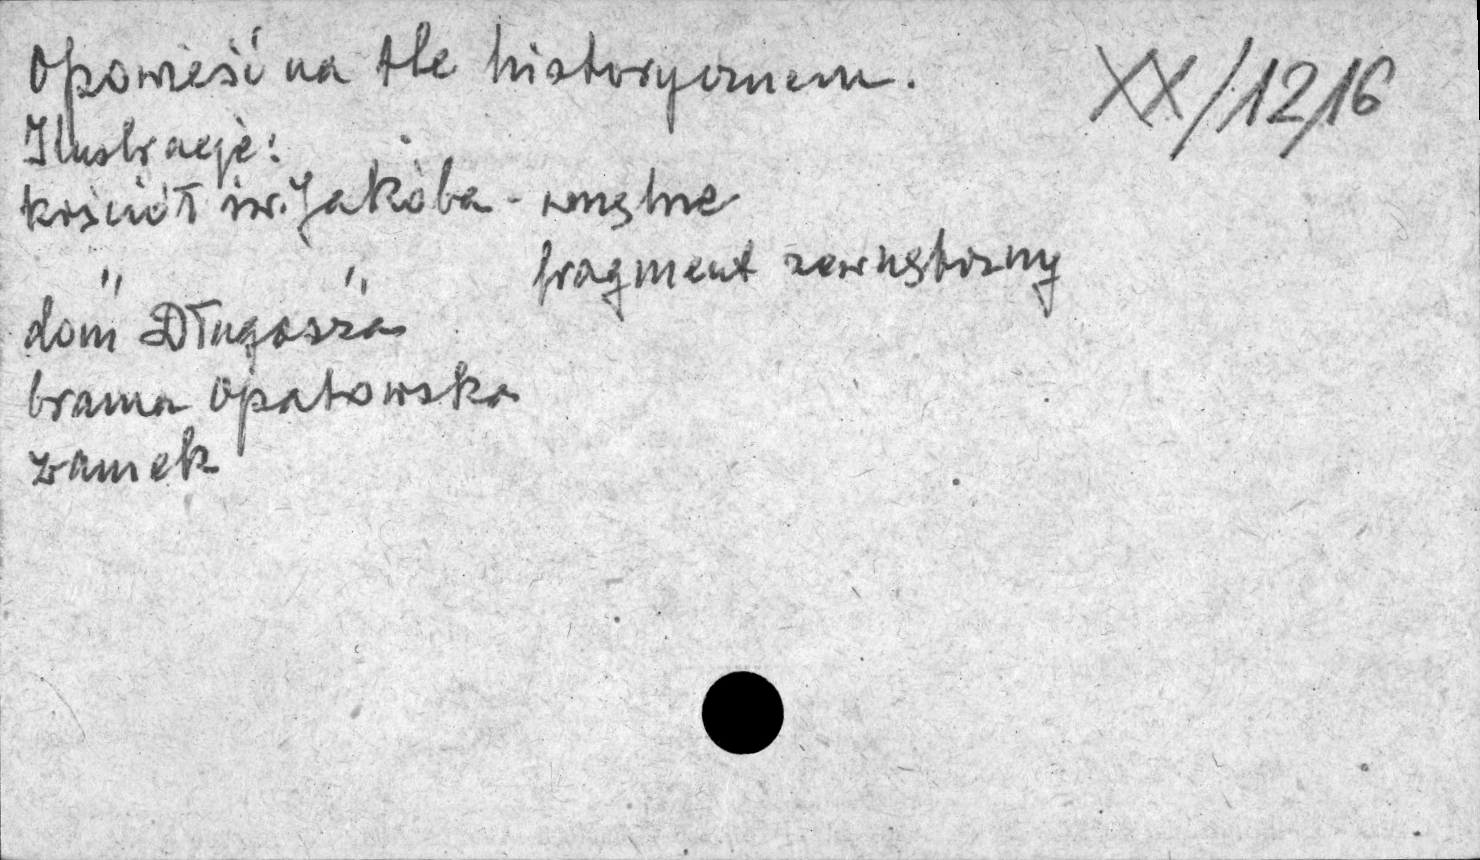 Opowieść na tle historycznem.
XX/1216
Ilustracje:
kościół św. Jakóba - wnętrze
" " fragment zewnętrzny
dom Długosza
brama Opatowska
zamek